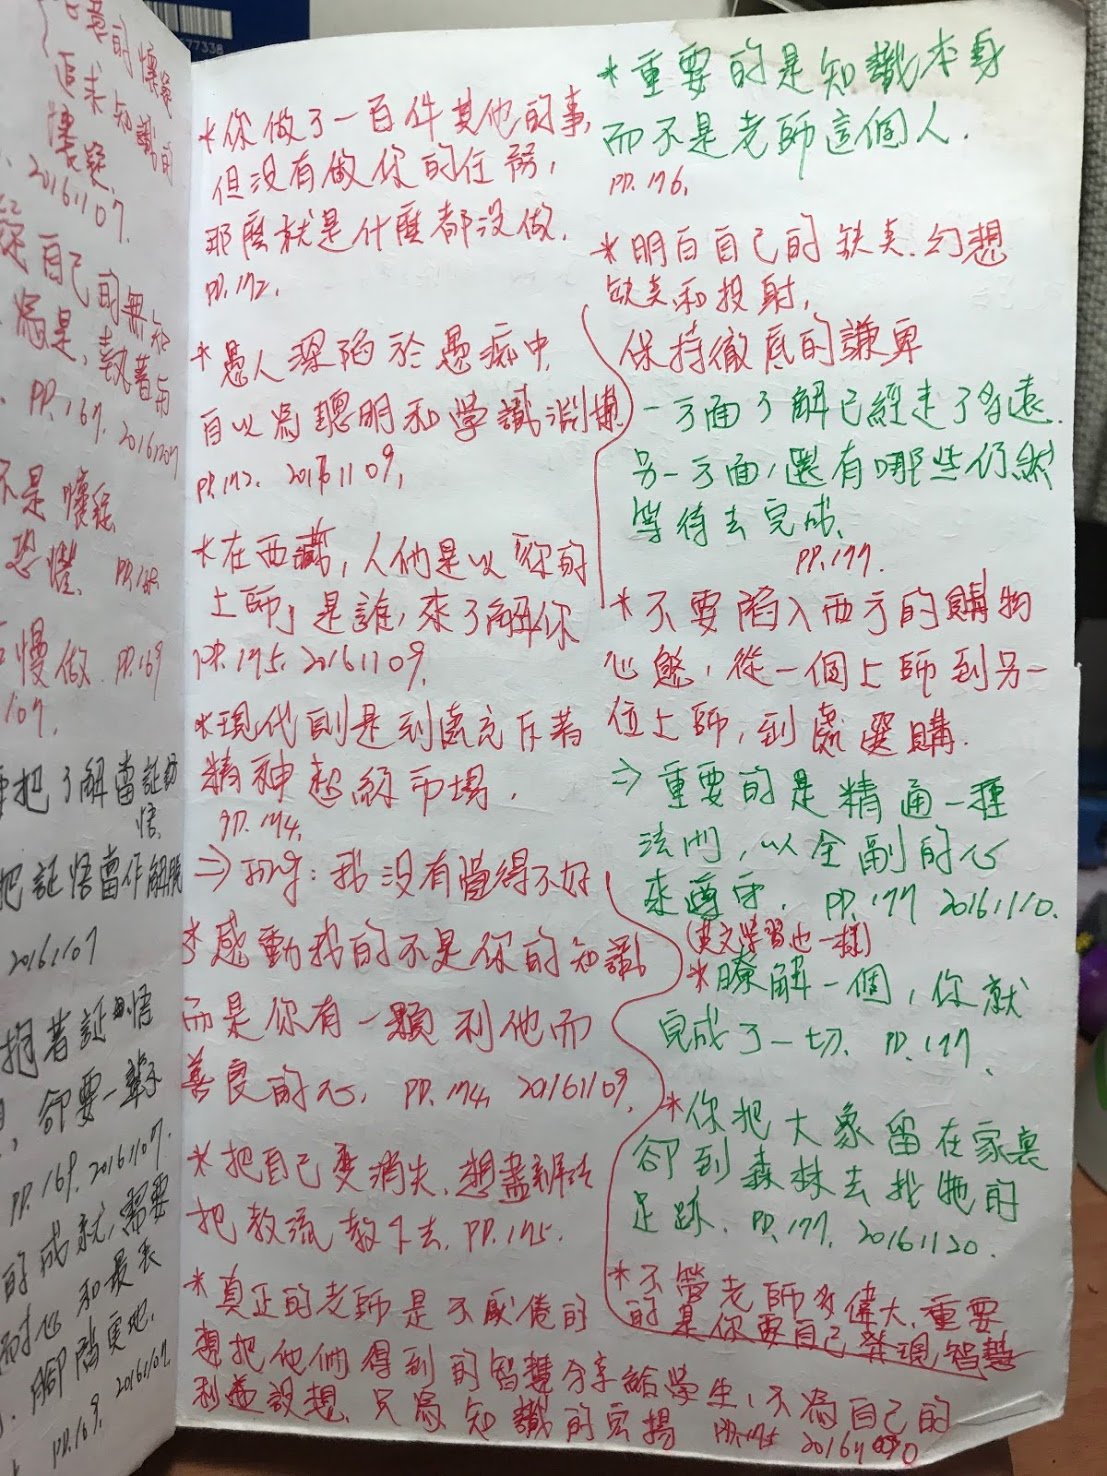 77338
意的懷疑
追求知識的
懷疑.
20161107.
自己的無知
為是,執著与
PP.167. 20161207
不是懷疑
恐懼. PP.168.
慢做. PP.169
107.
把了解當証悟
悟.
把証悟當作解脫
20161107
抱着証悟
,卻要一輩子
PP.169. 20161107.
的成就,需要
耐心和最長
腳踏實地.
PP.169. 20161107.
*你做了一百件其他的事,
但没有做你的任務,
那麼就是什麼都没做.
PP.172.
*愚人深陷於愚痴中,
自以為聰明和学識淵博
PP.172. 20161109,
*在西藏,人他是以「你的
上師」是誰,來了解你
PP.175. 20161109.
*現代則是到處充斥著
精神超級市場.
PP.174.
我没有覺得不好
*感動我的不是你的知識
而是你有一顆利他而
善良的心. PP.174, 20161109.
*把自己变消失.想盡辦法
把教流教下去. PP.175.
*真正的老師是不厭倦的
想把他們得到的智慧分享給學生,不為自己的
利益設想.只為知識的宏揚 PP.175
*重要的是知識本身
而不是老師這個人.
PP.176,
*明白自己的缺失.幻想
缺失和投射,
保持徹底的謙卑
一方面了解已經走了多遠.
另一方面,還有哪些仍然
等待去完成.
PP.177.
*不要陷入西方的購物
心態,從一個上師到另一
位上師,到處選購.
⇒重要的是精通一種
法門,以全副的心
來遵守. PP.177 20161110.
(英文学習也一樣)
*瞭解一個,你就
完成了一切. PP.177.
*你把大象留在家裏
卻到森林去找牠的
足跡. PP.177. 20161120.
*不管老師多偉大,重要
的是你要自己發現智慧